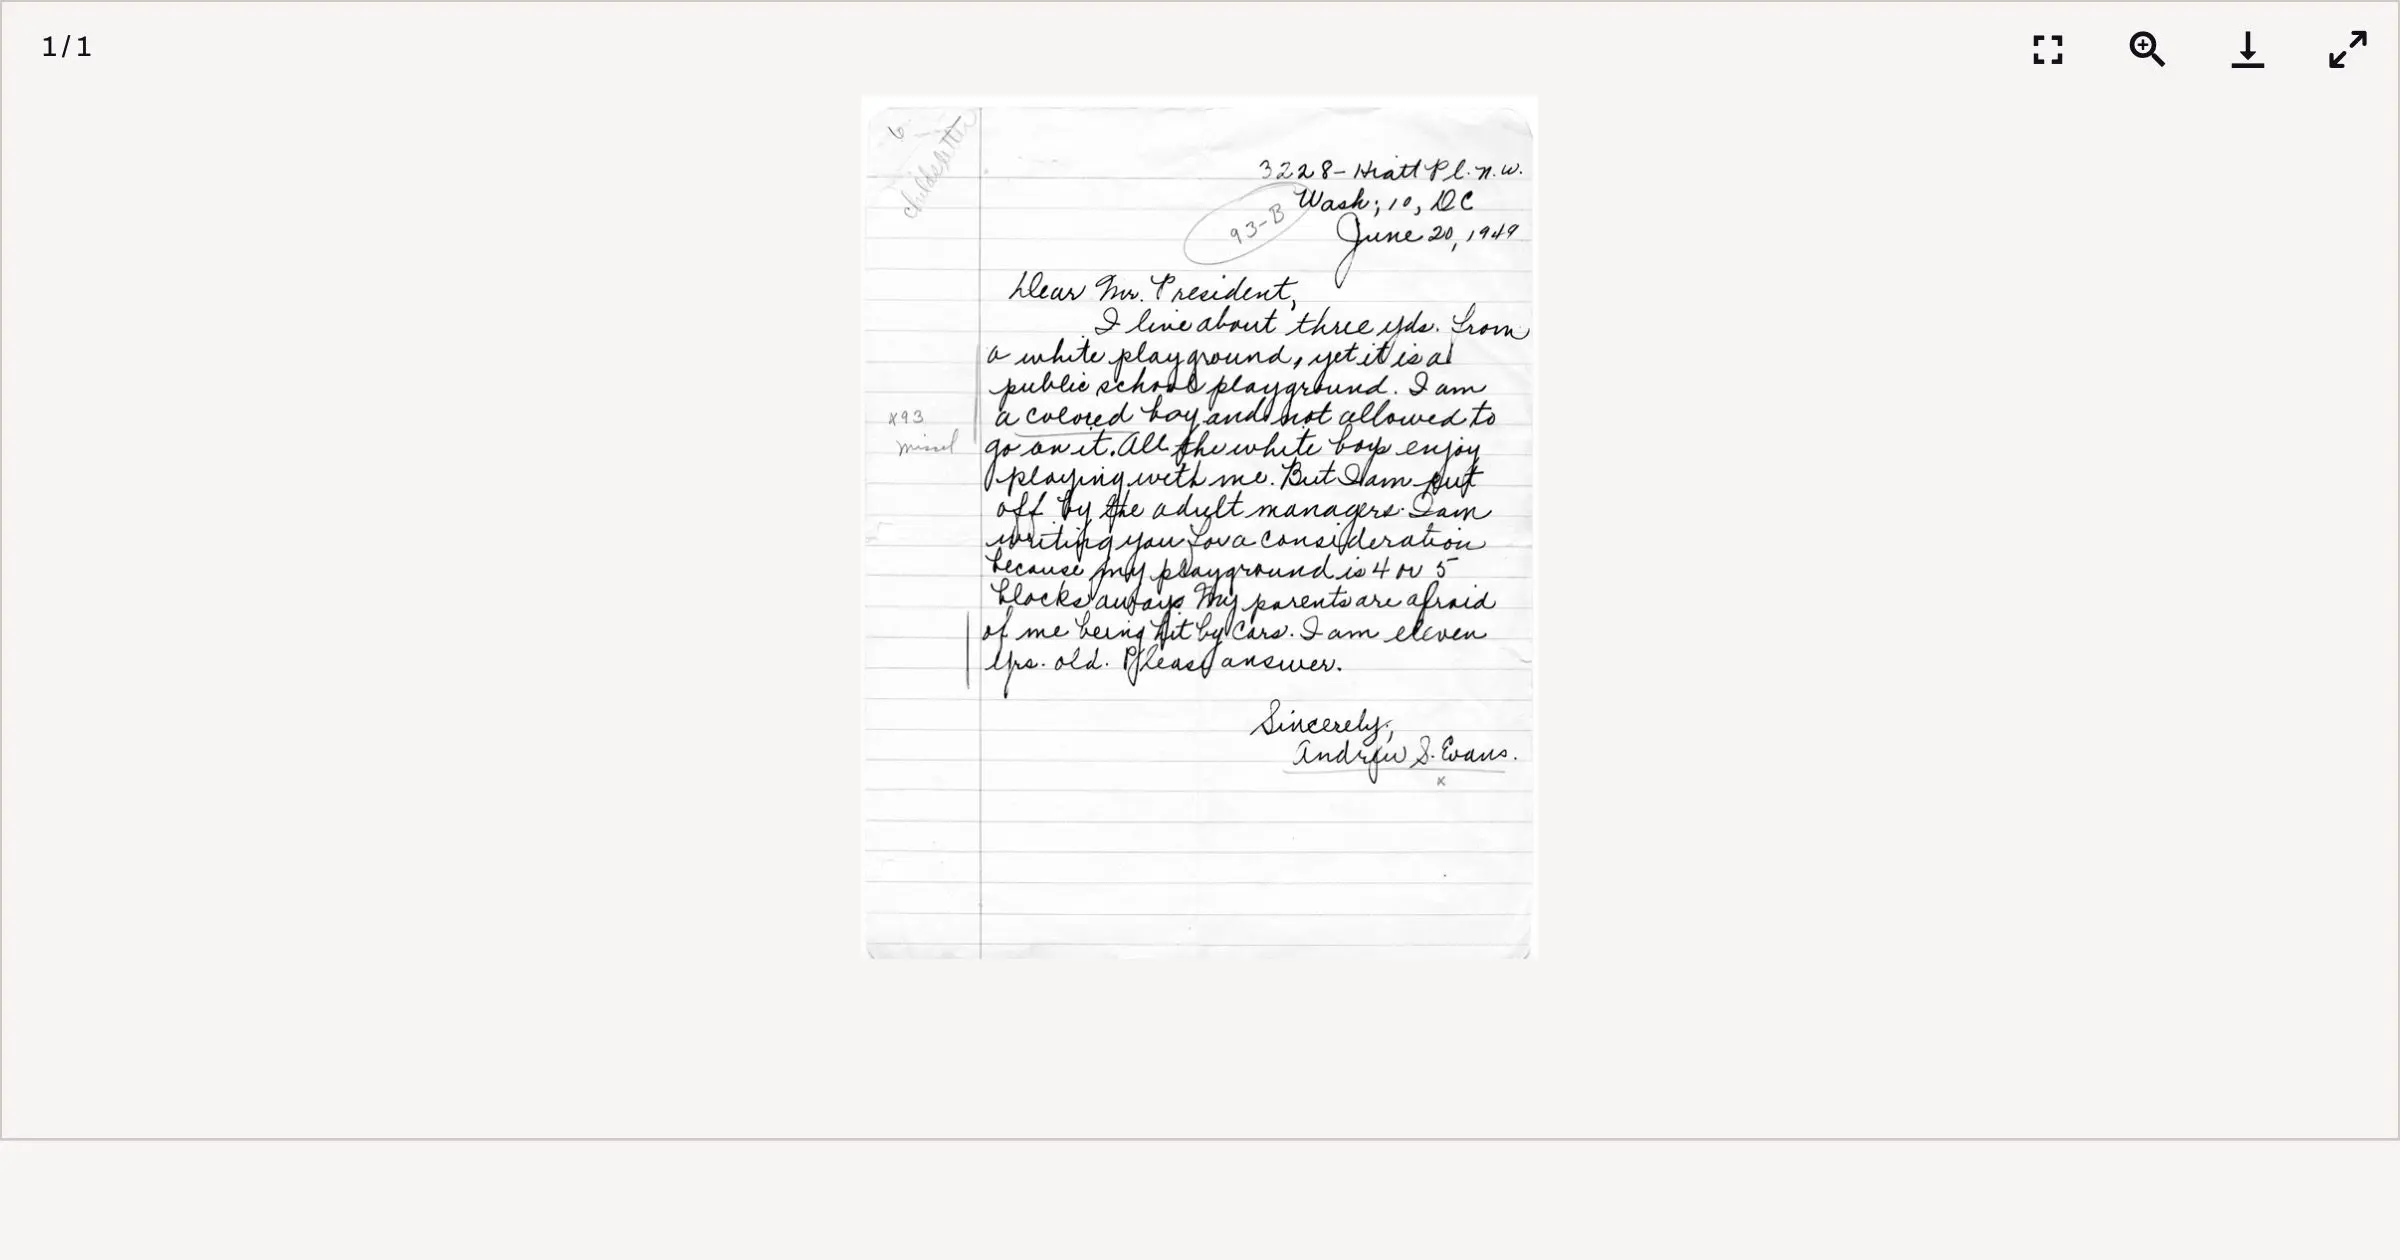 1/1
6
childs letter
3228- Hiatt Pl. N.W.
Wash; 10, DC
93-B
June 20, 1949
Dear Mr. President,
I live about three yds. from
a white playground, yet it is a
public school playground. I am
a colored boy and not allowed to
x93
go on it. All the white boys enjoy
playing with me. But I am put
off by the adult managers. I am
writing you for a consideration
because my playground is 4 or 5
blocks away. My parents are afraid
of me being hit by cars. I am eleven
yrs. old. Please answer.
Sincerely,
Andrew S. Evans.
x